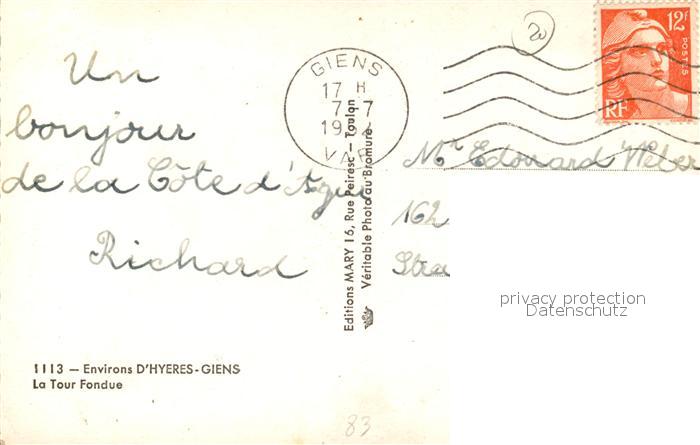 Un
bonjour
de la Côte d'Azur
Richard
1113 — Environs D'HYERES-GIENS
La Tour Fondue
83
Editions MARY 16, Rue Peiresc — Toulon
Véritable Photo au Bromure
GIENS
17 H
7-7
19
VAR
20
12F
POSTES
RF
Mr Edouard Weber
162
Stra
privacy protection
Datenschutz